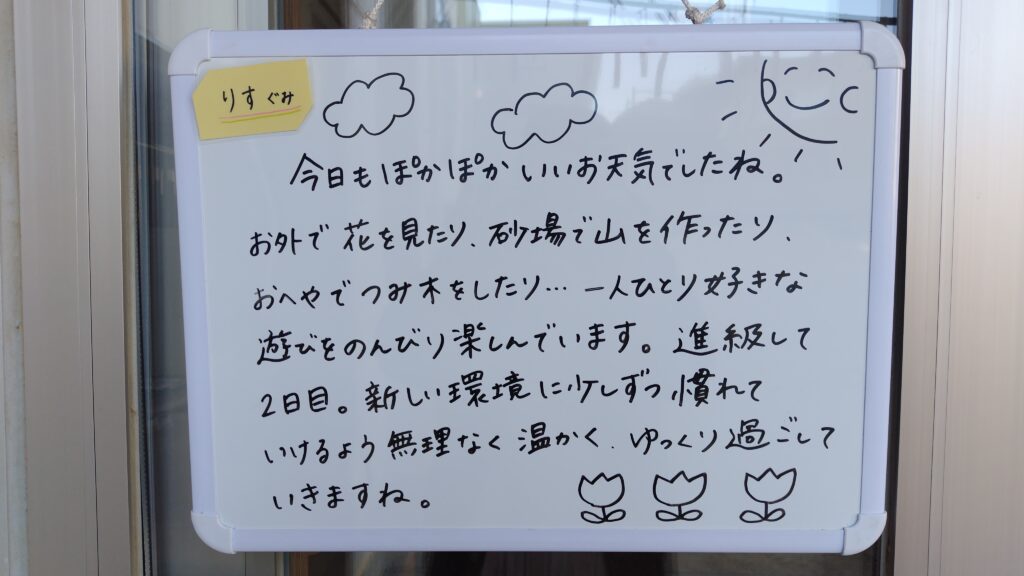 りすぐみ
今日もぽかぽかいいお天気でしたね。
お外で花を見たり、砂場で山を作ったり、
おへやでつみ木をしたり… 一人ひとり好きな
遊びをのんびり楽しんでいます。進級して
2日目。新しい環境に少しずつ慣れて
いけるよう無理なく温かく、ゆっくり過ごして
いきますね。